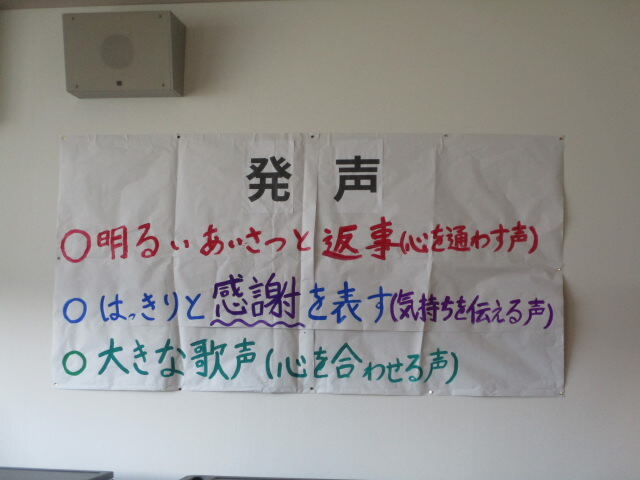 発声
○明るいあいさつと返事(心を通わす声)
○はっきりと感謝を表す(気持ちを伝える声)
○大きな歌声(心を合わせる声)